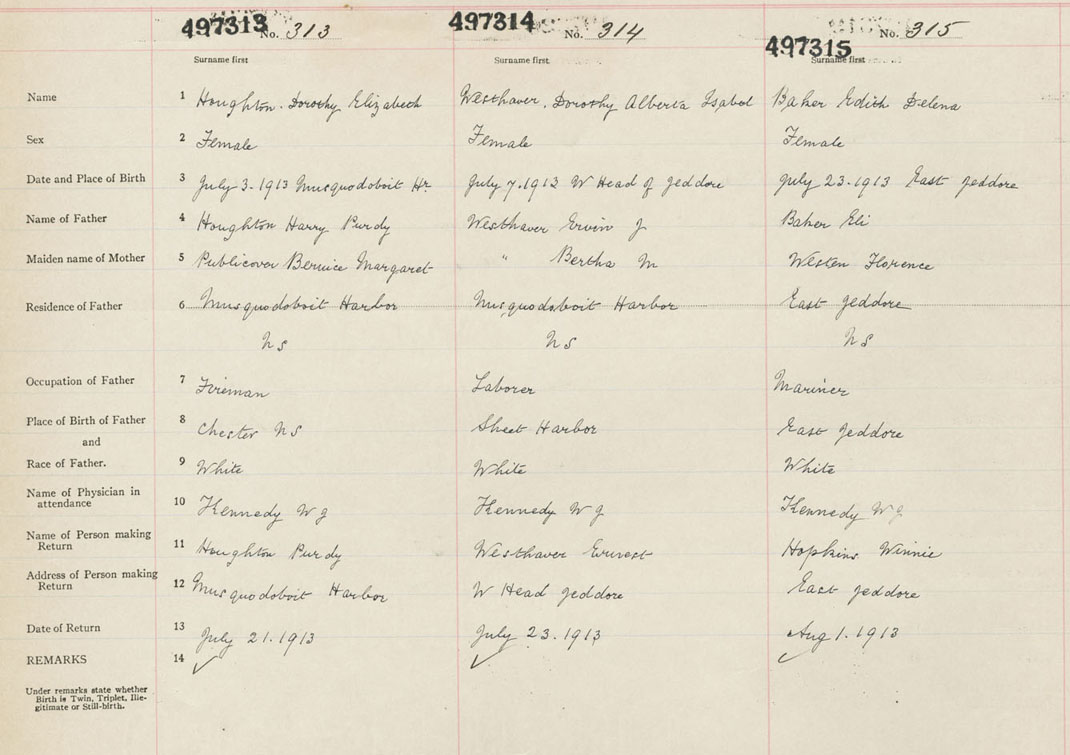 497313 No. 313 497314 No. 314 497315 No. 315
Surname first Surname first Surname first
Name 1 Houghton. Dorothy Elizabeth Westhaver. Dorothy Alberta Isabel Baker Edith Delena
Sex 2 Female Female Female
Date and Place of Birth 3 July 3. 1913 Musquodoboit Hr. July 7. 1913 W Head of Jeddore July 23. 1913 East Jeddore
Name of Father 4 Houghton Harry Purdy Westhaver Ervin J Baker Eli
Maiden name of Mother 5 Publicover Bernice Margaret " Bertha M Westen Florence
Residence of Father 6 Musquodoboit Harbor Musquodoboit Harbor East Jeddore
NS NS NS
Occupation of Father 7 Fireman Laborer Mariner
Place of Birth of Father 8 Chester NS Sheet Harbor East Jeddore
and
Race of Father. 9 White White White
Name of Physician in
attendance 10 Kennedy W J Kennedy W J Kennedy W J
Name of Person making
Return 11 Houghton Purdy Westhaver Ernest Hopkins Winnie
Address of Person making
Return 12 Musquodoboit Harbor W Head Jeddore East Jeddore
Date of Return 13 July 21. 1913 July 23. 1913 Aug 1. 1913
REMARKS 14 ✓ ✓ ✓
Under remarks state whether
Birth is Twin, Triplet, Ille-
gitimate or Still-birth.